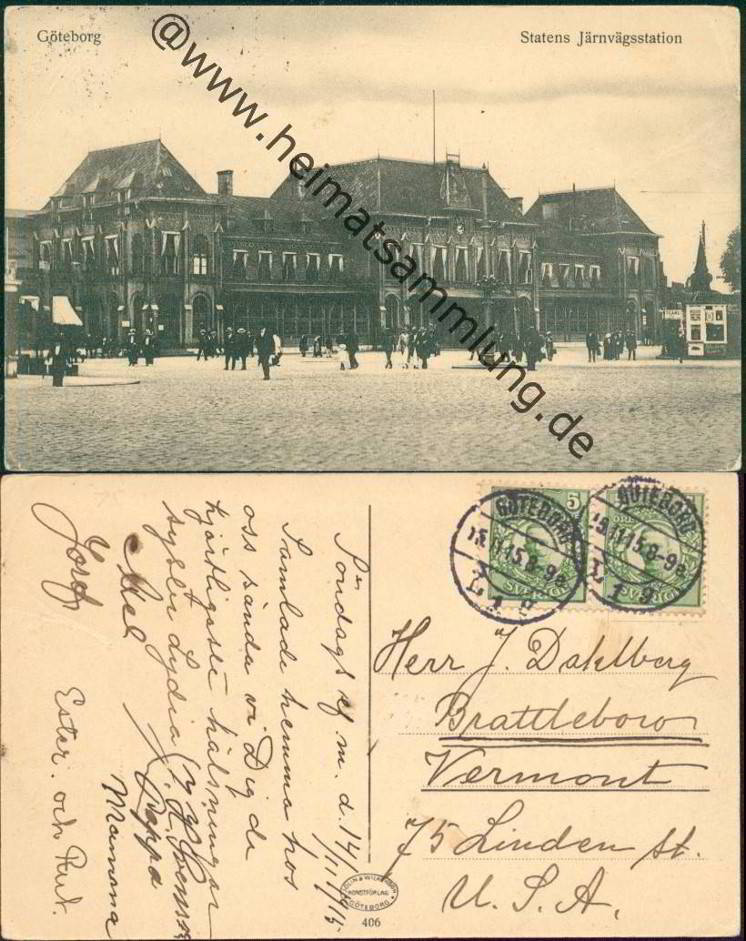 Göteborg
Statens Järnvägsstation
@www.heimatsammlung.de
Söndags ef m. d. 14/11 1915
Samlade hemma hos
oss sända vi Dig de
hjärtligaste hälsningar
syster Lydia
Axel
Pappa
Mamma
Josef
Ester. och Rut.
5
ÖRE
SVERIGE
SVERIGE
GÖTEBORG
15.11.15.8-9
L 1 9
GÖTEBORG
15.11.15.8-9
L 1 9
Herr J. Dahlberg
Brattleboro
Vermont
75 Linden St.
U. S. A.
KONSTFÖRLAG
GÖTEBORG
406